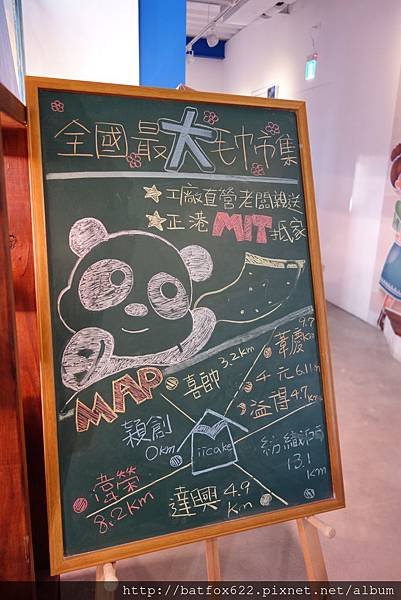 全國最大毛巾市集
★工廠直營老闆親送
★正港MIT抵家
MAP
嘉帥 3.2km
葦慶 9.7km
千元 6.11m
益得 4.7km
穎創 0km
iicake
紡織
13.1km
偉榮
8.2km
達興 4.9km
http://batfox622.pixnet.net/album